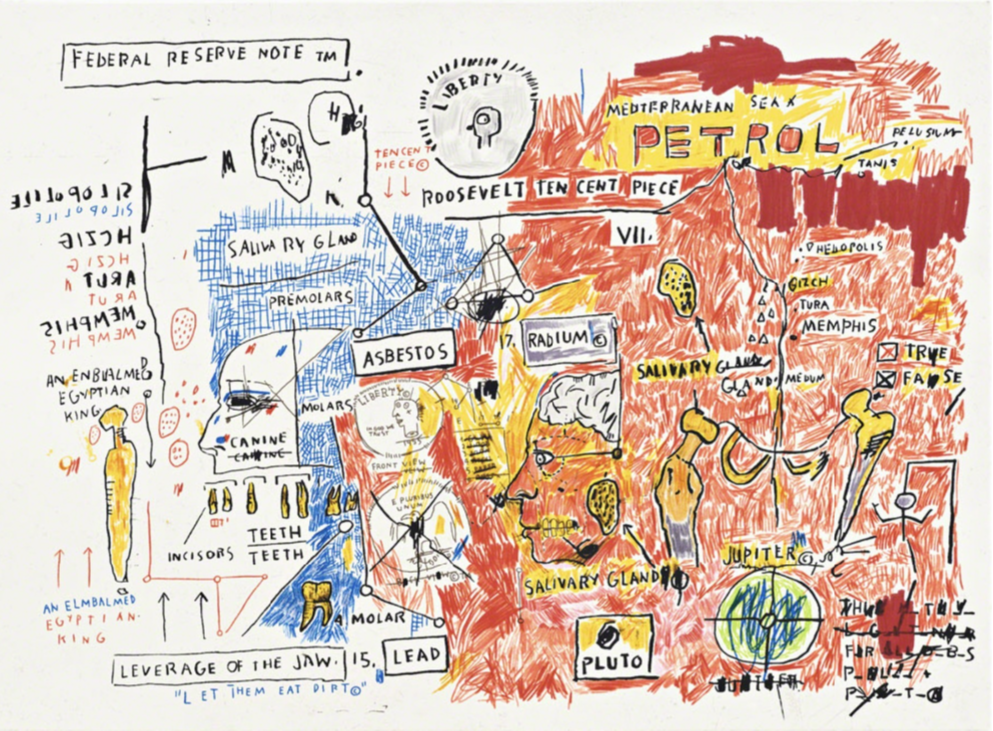 FEDERAL RESERVE NOTE TM
LIBERTY
MEDITERRANEAN SEA
PETROL
PELUSIUM
TANIS
TEN CENT
PIECE©
ROOSEVELT TEN CENT PIECE
VII.
SALIVARY GLAND
PREMOLARS
HELOPOLIS
GIZCH
TURA
MEMPHIS
MEDUM
MEMPHIS
AN ENBUALMED
EGYPTIAN
KING
ASBESTOS
17.
RADIUM ©
SALIVARY GLAND
GLAND
TRUE
FALSE
MOLARS
LIBERTY
IN GOD WE
TRUST
FRONT VIEW
CANINE
CANINE
E PLURIBUS
UNUM
INCISORS
TEETH
TEETH
SALIVARY GLAND
JUPITER©
AN ELMBALMED
EGYPTIAN
KING
MOLAR
LEVERAGE OF THE JAW.
15.
LEAD
PLUTO
"LET THEM EAT DIRT©"